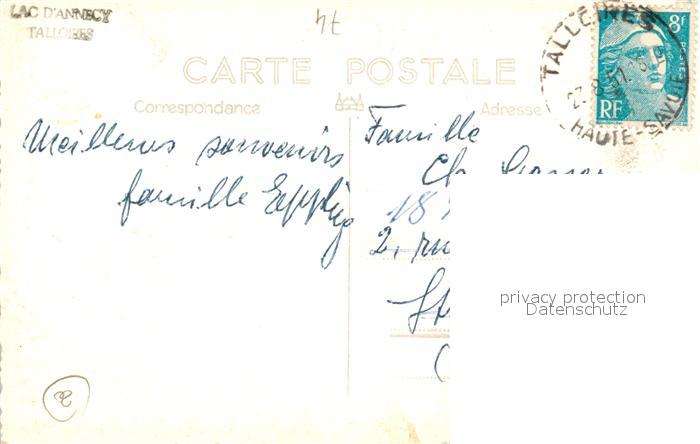 LAC D'ANNECY
TALLOIRES
74
CARTE POSTALE
Correspondance
Adresse
TALLOIRES
HAUTE-SAVOIE
8f
POSTES
RF
Meilleurs souvenirs
famille Epplig
Famille
Ch.
18
2, rue
privacy protection
Datenschutz
2